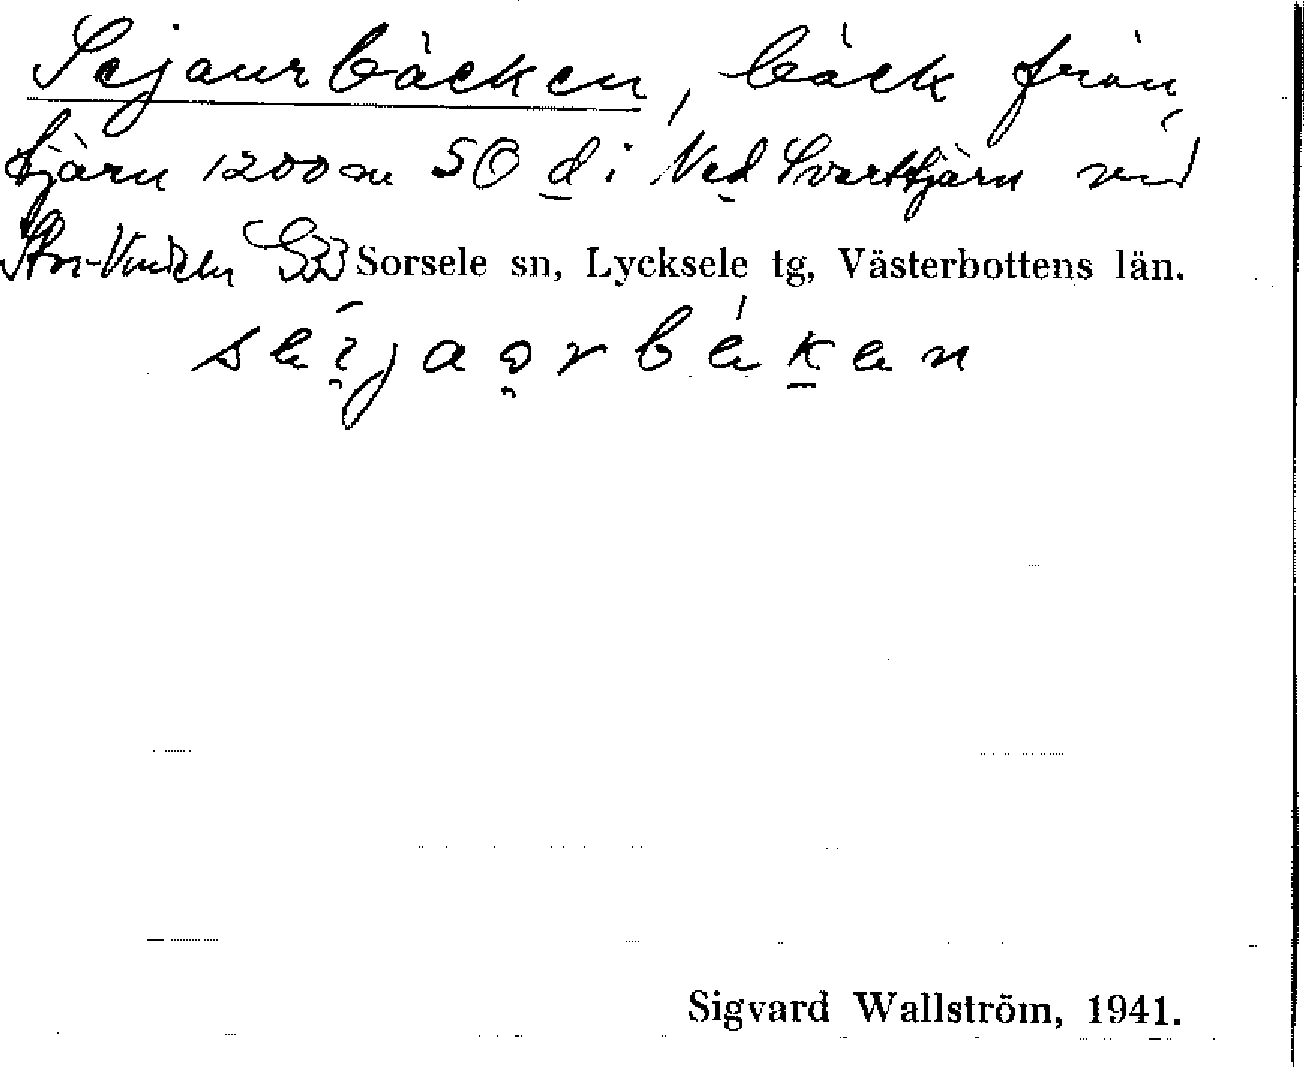 Sejaurbäcken, bäck från
tjärn 1200 m SO d i Ned Svarttjärn vid
Stor-Vindeln G33 Sorsele sn, Lycksele tg, Västerbottens län.
Sigvard Wallström, 1941.